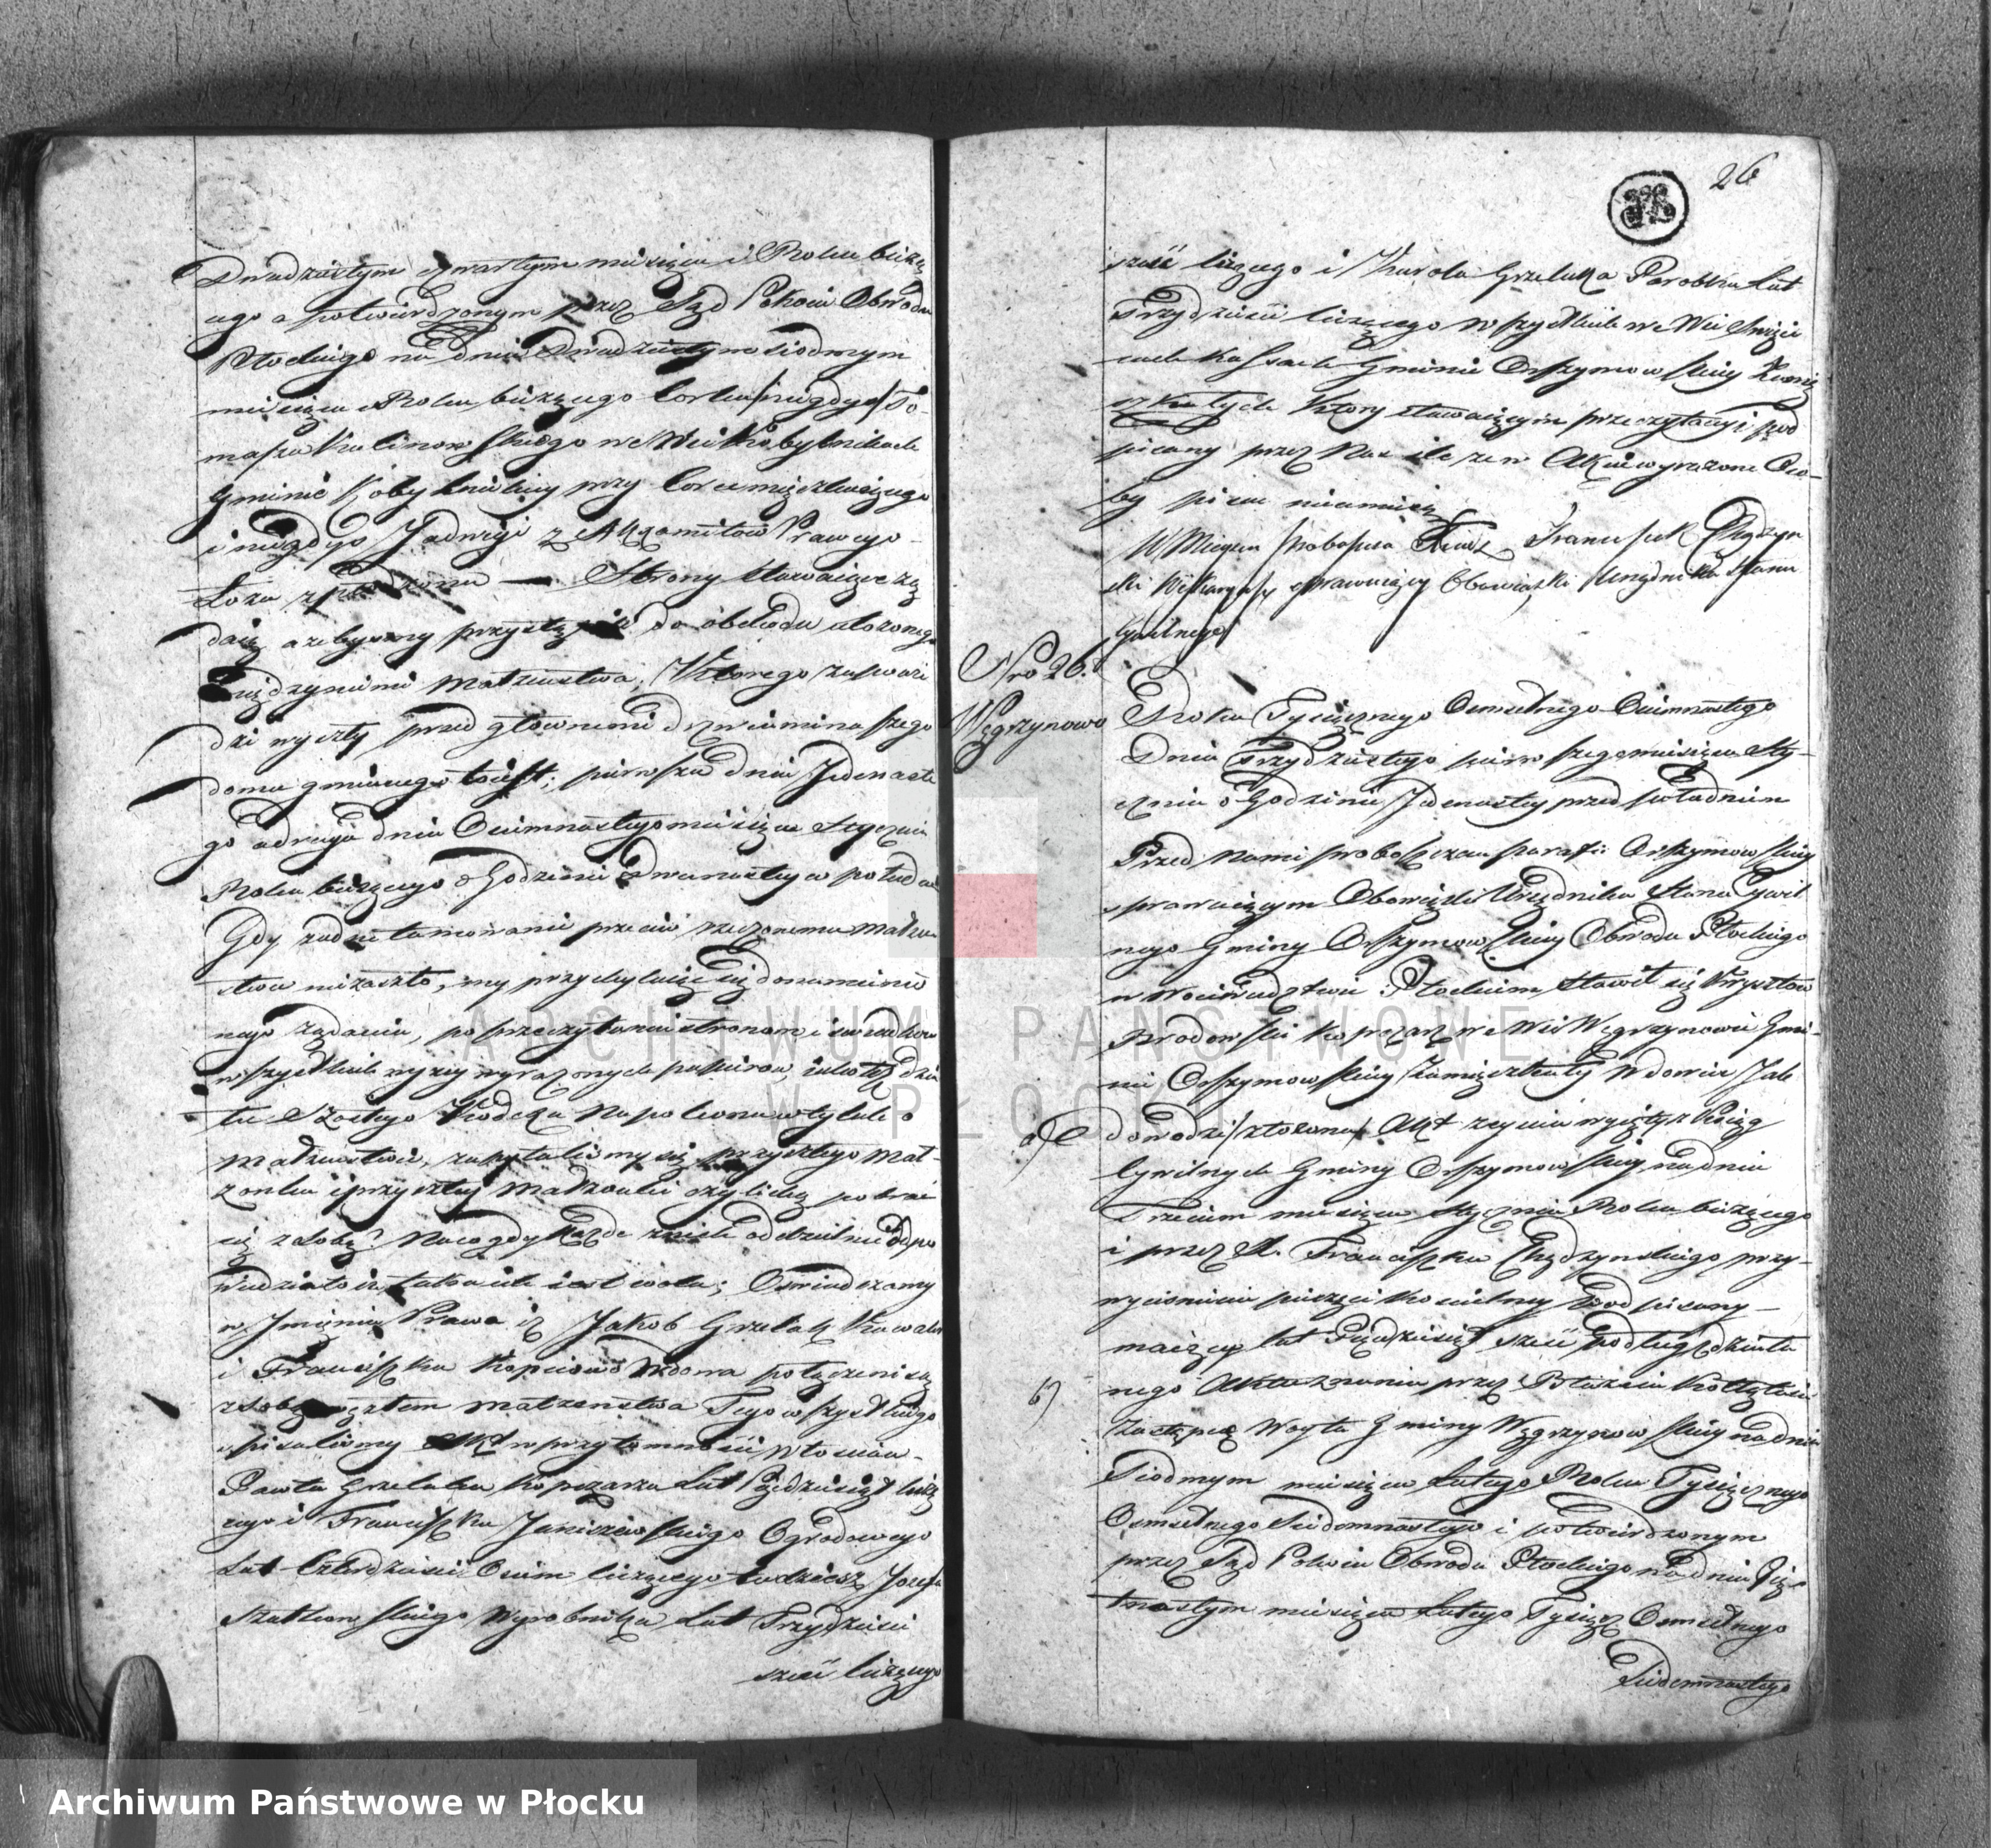 Dwudziestym czwartym miesiąca i Roku bieżą
cego a potwierdzonym przez Sąd Pokoiu Obwodu
Płockiego na dniu Dwudziestym siodmym
miesiąca i Roku bieżącego Corka niegdys To-
masza Kalinowskiego we Wsi Kobylnikach
Gminie Kobylnickiey przy Corce mięszkaiącego
i niegdys Jadwigi z Axamitow Prawego
Łoża spłodzona — Strony stawaiące żą
daią ażebysmy przystąpili do obchodu ułożonego
między niemi Małżenstwa, Ktorego zapowie
dzi wyszły przed głownemi drzwiami naszego
domu gminnego to iest; pierwsza dnia Jedenaste
go a druga dnia Osimnastego miesiąca Stycznia
Roku bieżącego o Godzinie Dwunastey w południe
Gdy żadne tamowanie przeciw rzeczonemu Małżen
stwu niezaszło, my przychylaiąc się do namienio
nego żądania, po przeczytaniu stronom i swiadkom
wszystkich wyżey wyrażonych papierow, i działu
tu Szostego Kodexu Napoleona w tytule o
Małżenstwie, zapytalismy się przyszłego Mał-
żonka i przyszłey Małżonki czyli chcą pobrac
się z sobą? Na co gdy każde z nich oddzielnie odpo
wiedziało iż taka ich iest wola; Oswiadczamy
w Imieniu Prawa iż Jakob Grzelak Kawaler
i Franciszka Kopciowa Wdowa połączeni są
z sobą węzłem Małżenstwa Tego wszystkiego
spisalismy Akt w przytomnosci Włoscian
Pawła Grzelaka Kopczarza Lat Pięcdziesiąt liczą
cego i Franciszka Janiszewskiego Ogrodowego
Lat Czterdziesci Osim liczącego tudzież Jozefa
Szatkowskiego Wyrobnika Lat Trzydziesci
szesc liczącego
26
szesc liczącego i Karola Grzelaka Parobka Lat
Trzydziesci liczącego wszystkich we Wsi
Gminie Orszymowskiey
Ktory stawaiącym przeczytany i pod
pisany przez Nas ile że w Akcie wyrażone Oso-
by pisac nieumieią
W Mieyscu Proboszcza Franciszek Chądzyn
ski Wikaryusz sprawuiący Obowiązki Urzędnika Stanu
Cywilnego
Nro 26.
Węgrzynowo
Roku Tysiącznego Osmsetnego Osimnastego
Dnia Trzydziestego pierwszego miesiąca Sty-
cznia o Godzinie Jedenastey przed południem
Przed Nami Proboszczem Parafii Orszymowskiey
sprawuiącym Obowiązki Urzędnika Stanu Cywil
nego Gminy Orszymowskiey Obwodu Płockiego
w Woiewodztwie Płockim, Stawił się Krzysztow
Brodowski Kopczarz we Wsi Węgrzynowie Gmi-
nie Orszymowskiey Zamięszkały Wdowiec Jak
a) dowodzi złożona Akt zeyscia wyięty z Xsiąg
Cywilnych Gminy Orszymowskiey na dniu
Trzecim miesiąca Stycznia Roku bieżącego
i przez X. Franciszka Chądzynskiego przy
wycisnieniu pieczęci Koscielney Podpisany —
maiący lat Pięcdziesiąt szesc podług złożo
b) nego Aktu znania przez Błażeia
Zastępcę Woyta Gminy Węgrzynowskiey na dniu
Siodmym miesiąca Lutego Roku Tysiącznego
Osmsetnego Siedemnastego i potwierdzonym
przez Sąd Pokoiu Obwodu Płockiego na dniu Pię-
tnastym miesiąca Lutego Tysiąc Osmsetnego
Siedemnastego
ARCHIWUM PAŃSTWOWE
W PŁOCKU
Archiwum Państwowe w Płocku